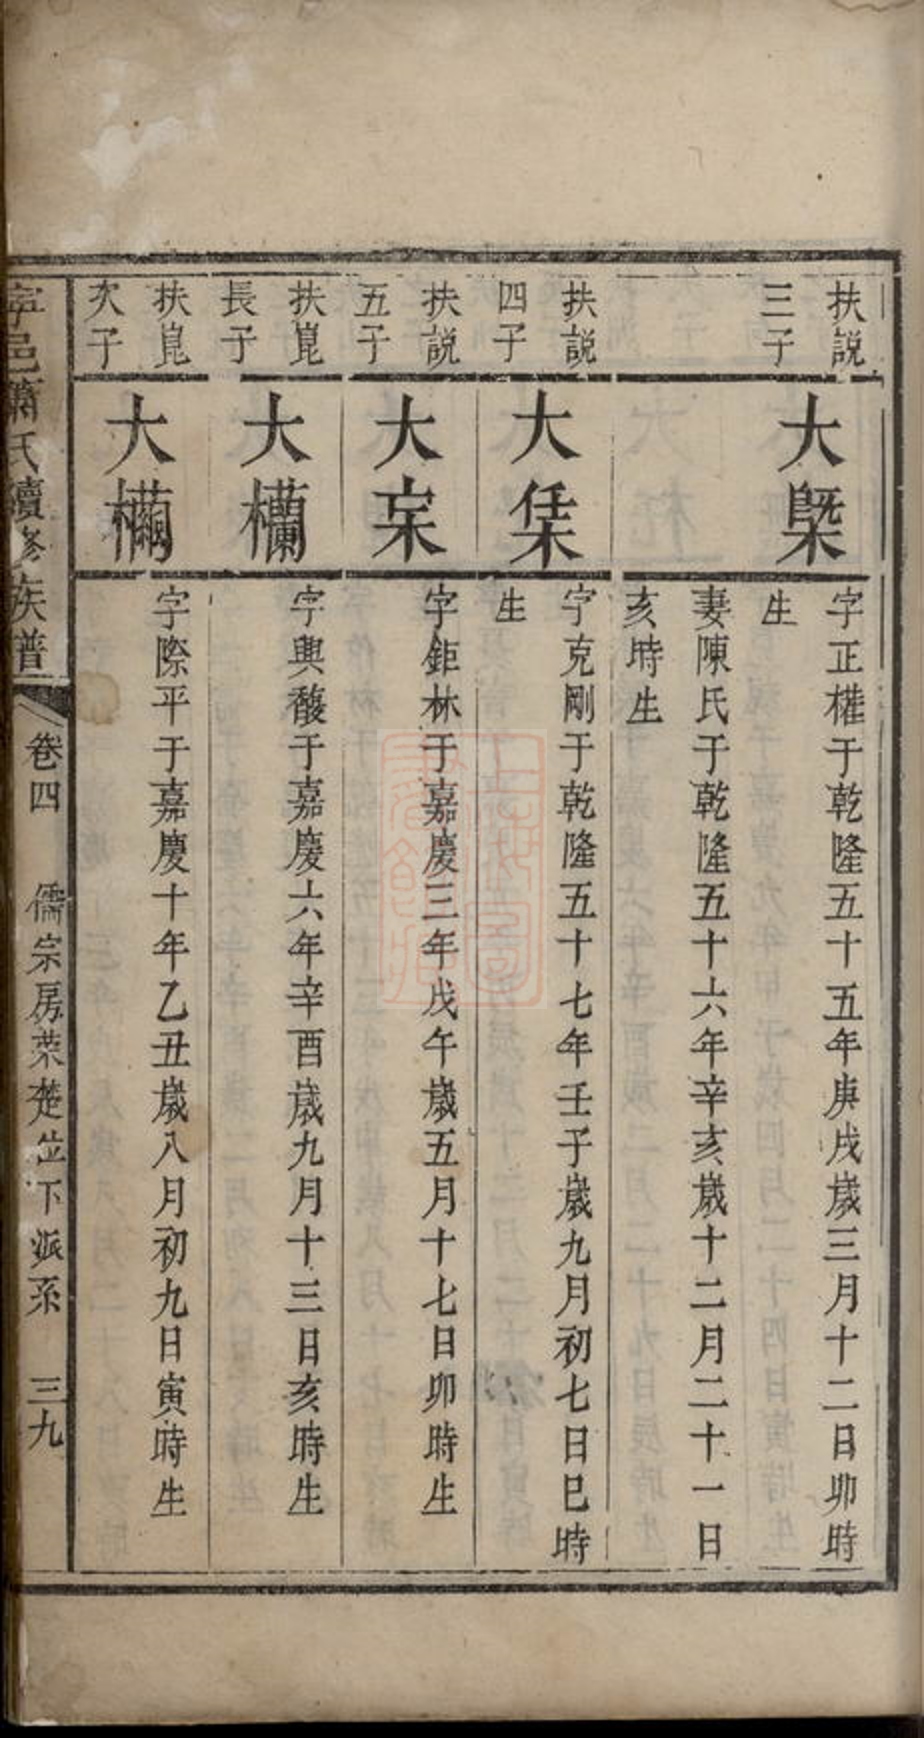 扶説
三子
大槩
字正權于乾隆五十五年庚戌歲三月十二日卯時
生
妻陳氏于乾隆五十六年辛亥歲十二月二十一日
亥時生
扶説
四子
大
字克剛于乾隆五十七年壬子歲九月初七日巳時
生
扶説
五子
大宩
字鉅林于嘉慶三年戊午歲五月十七日卯時生
扶崑
長子
大欄
字興馥于嘉慶六年辛酉歲九月十三日亥時生
扶崑
次子
大
字際平于嘉慶十年乙丑歲八月初九日寅時生
寧邑蕭氏續修族譜
卷四
儒宗房葉楚位下派系
三九